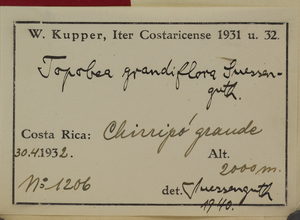 W. Kupper, Iter Costaricense 1931 u. 32.
Topobea grandiflora Suessen-
guth.
Costa Rica: Chirripó grande
30.4.1932. Alt.
2000 m.
No. 1206 det. Suessenguth
1940.